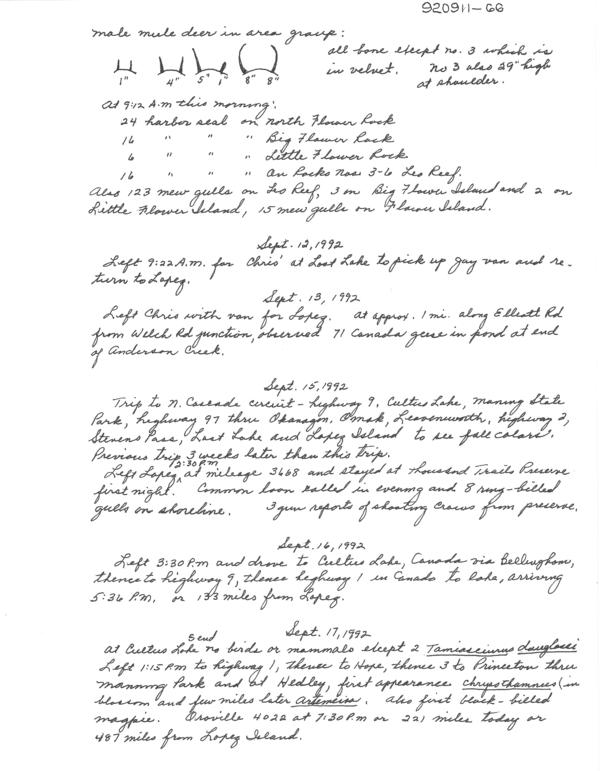 920911-GG
male mule deer in area group:
1" 4" 5" 1" 8" 8"
all bone except no. 3 which is
in velvet. No 3 also 29" high
at shoulder.
At 9:12 A.m this morning:
24 harbor seal on North Flower Rock
16 " " " Big Flower Rock
6 " " " Little Flower Rock
16 " " " on Rocks Nos. 3-6 Leo Reef.
Also 123 mew gulls on Leo Reef, 3 on Big Flower Island and 2 on
Little Flower Island, 15 mew gulls on Flower Island.
Sept. 12, 1992
Left 9:22 A.m. for Chris' at Lost Lake to pick up Jay van and re-
turn to Lopez.
Sept. 13, 1992
Left Chris with van for Lopez. At approx. 1 mi. along Elliott Rd
from Welch Rd junction, observed 71 Canada geese in pond at end
of Anderson Creek.
Sept. 15, 1992
Trip to N. Cascade circuit - highway 9, Cultus Lake, Maning State
Park, highway 97 thru Okanagon, Omak, Leavenworth, highway 2,
Stevens Pass, Lost Lake and Lopez Island to see fall colors.
Previous trip 3 weeks later than this trip.
Left Lopez 2:30 P.m at mileage 3668 and stayed at Thousand Trails Preserve
first night. Common loon called in evening and 8 ring-billed
gulls on shoreline. 3 gun reports of shooting crows from preserve.
Sept. 16, 1992
Left 3:30 P.m and drove to Cultus Lake, Canada via Bellingham,
thence to highway 9, thence highway 1 in Canada to lake, arriving
5:36 P.M. or 133 miles from Lopez.
Sept. 17, 1992
At Cultus Lake S end no birds or mammals except 2 Tamiasciurus douglassi
Left 1:15 P.m to highway 1, thence to Hope, thence 3 to Princeton thru
Manning Park and at Hedley, first appearance Chrysothamnus (in
blossom and few miles later Artemisia. Also first black-billed
magpie. Oroville 4022 at 7:30 P.m or 221 miles today or
487 miles from Lopez Island.